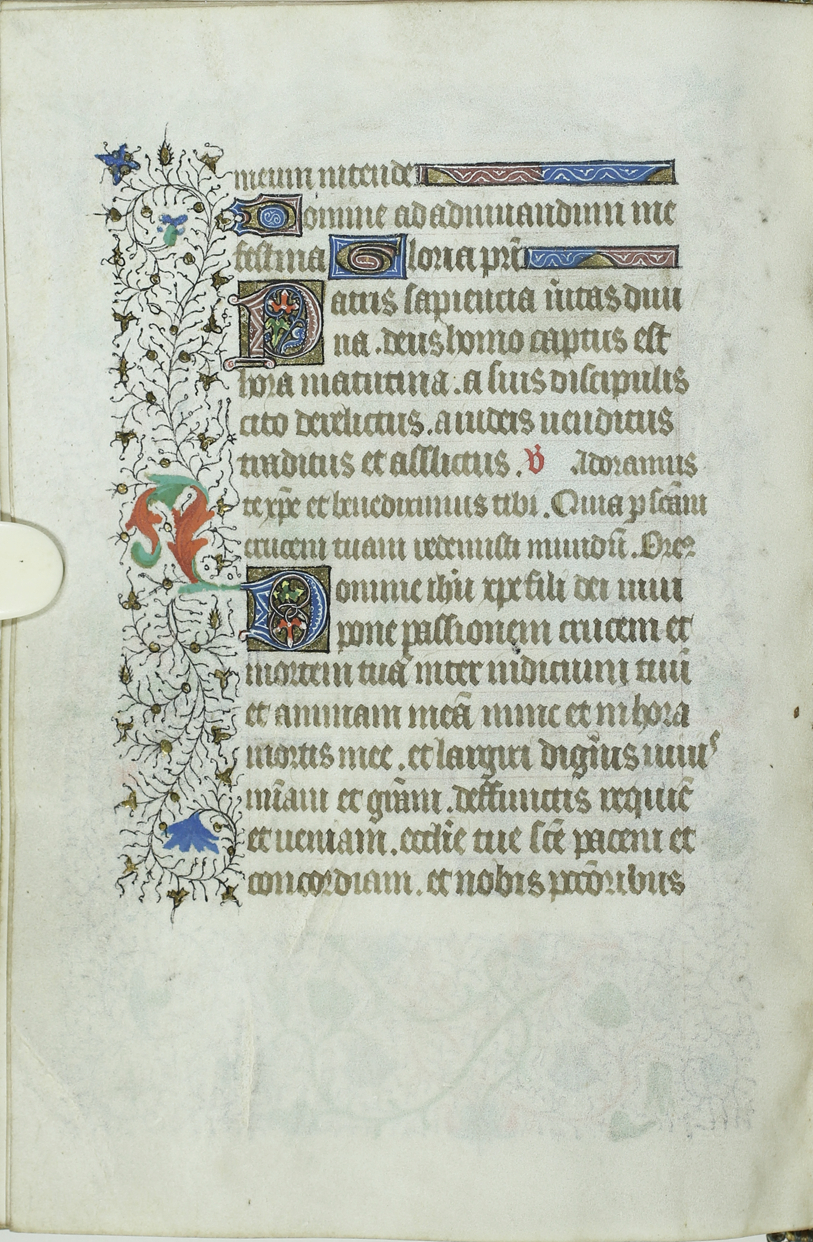 meum intende
Domine ad adiuuandum me
festina Gloria pr̃i
Patris sapiencia ũitas diui
na . deus homo captus est
hora matutina . a suis discipulis
cito derelictus . a iudeis uenditus
traditus et afflictus . v̄ Adoramus
te xp̃e et benedicimus tibi . Quia p scãm
crucem tuam redemisti mundũ . Orer
Domine ihũ xpe fili dei uiui
pone passionem crucem et
mortem tuã inter iudicium tuũ
et animam meã nunc et in hora
mortis mee . et largiri digñis uiuis
mĩam et grãm . deffunctis requiẽ
et ueniam . ecclie tue scẽ pacem et
concordiam . et nobis pccõribus